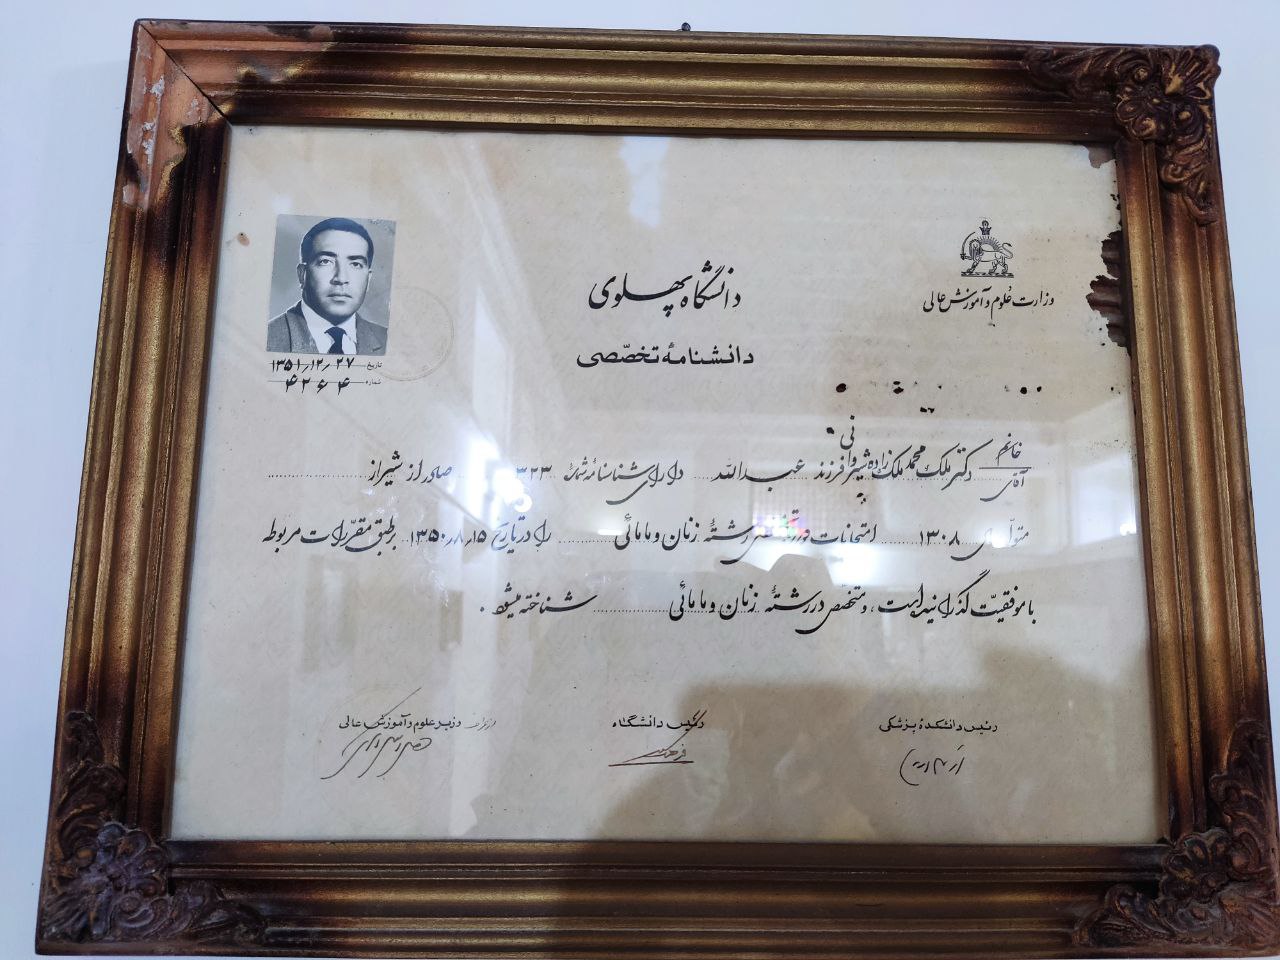 وزارت علوم و آموزش عالی
دانشگاه پهلوی
دانشنامهٔ تخصّصی
تاریخ ۱۳۵۱/۱۲/۲۷
شماره ۴۲۶۴
خانم
آقای دکتر ملک محمد ملک زاده شیروانی فرزند عبدالله دارای شناسنامهٔ شمارهٔ ۳۲۳ صادر از شیراز
متولد سال ۱۳۰۸ امتحانات دوره تخصصی رشتهٔ زنان و مامائی را در تاریخ ۱۳۵۰/۸/۱۵ بر طبق مقرّرات مربوطه
با موفقیّت گذرانیده است، و متخصّص در رشتهٔ زنان و مامائی شناخته میشود.
رئیس دانشکدهٔ پزشکی
رئیس دانشگاه
از طرف وزیر علوم و آموزش عالی